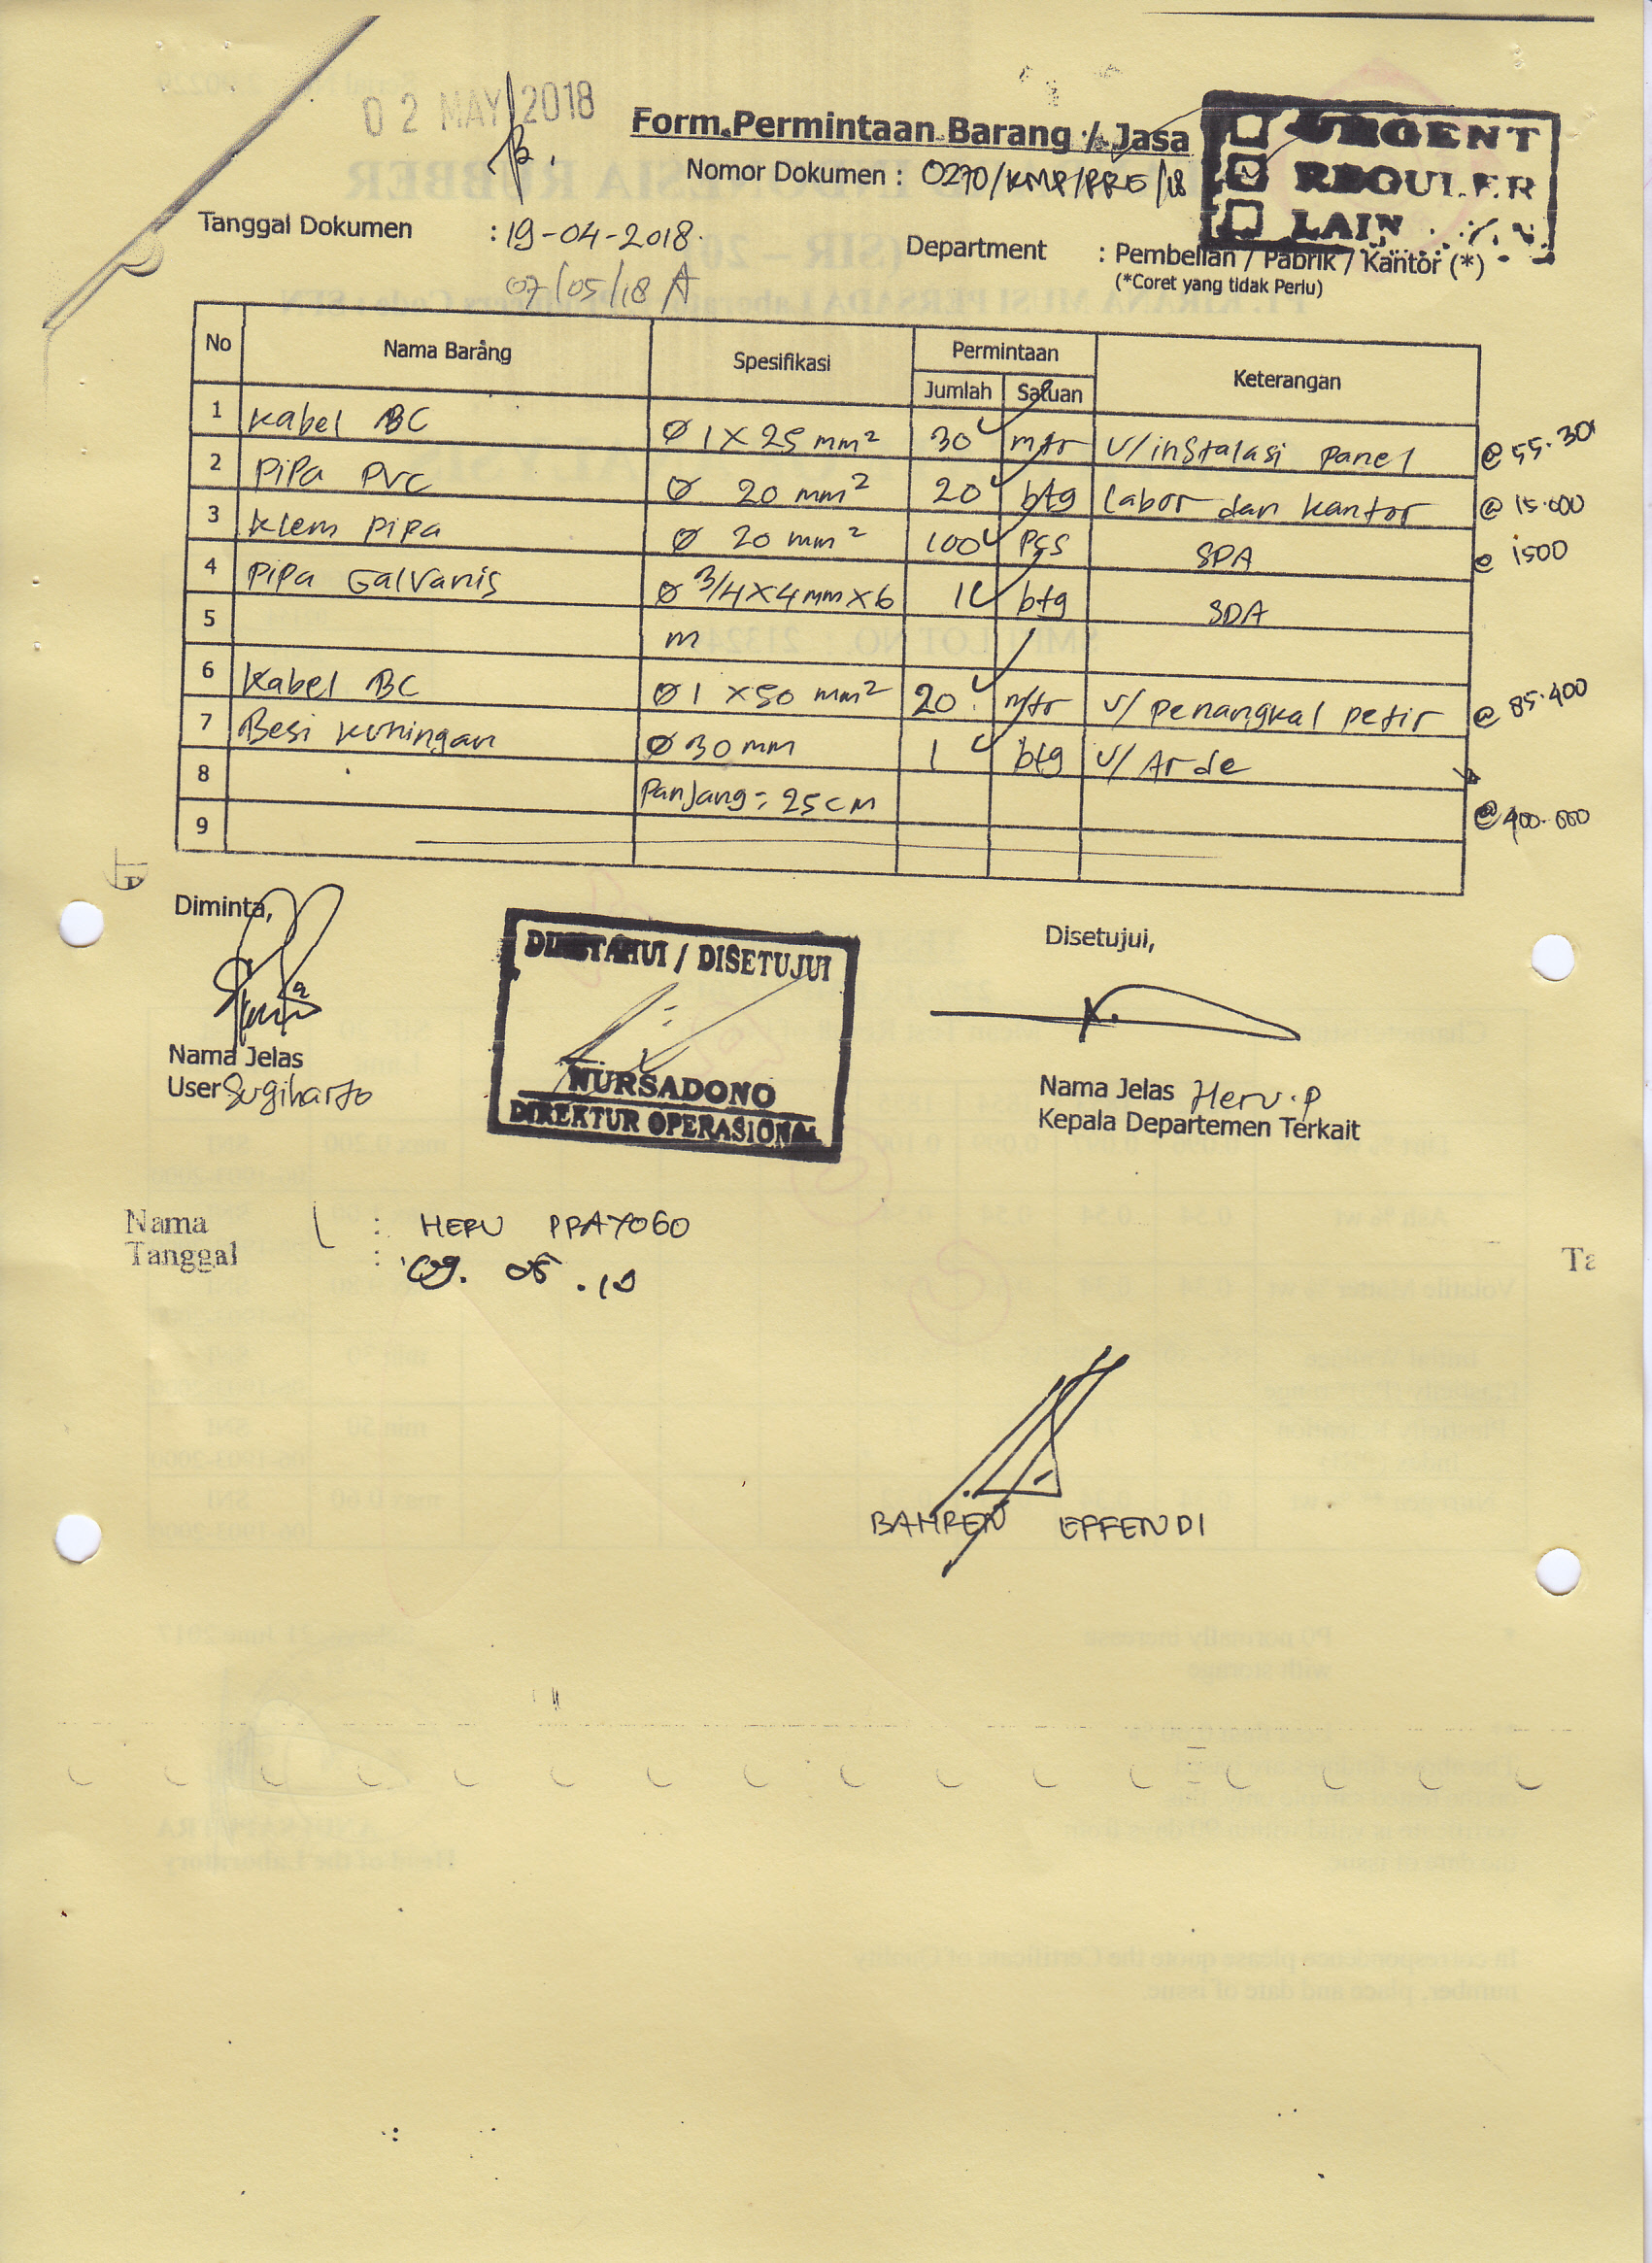 02 MAY 2018
Form Permintaan Barang / Jasa
Nomor Dokumen : 0270/KMP/PRE/18
URGENT
REGULER
LAIN
Tanggal Dokumen : 19-04-2018
07/05/18
Department : Pembelian / Pabrik / Kantor (*)
(*Coret yang tidak Perlu)
No Nama Barang Spesifikasi Permintaan Keterangan
Jumlah Satuan
1 Kabel BC Ø 1 X 25 mm² 30 mtr U/instalasi panel @ 55.30
2 Pipa PVC Ø 20 mm² 20 btg labor dan kantor @ 15.000
3 Klem pipa Ø 20 mm² 100 pcs SDA @ 1500
4 Pipa Galvanis Ø 3/4 X 4 mm X 6 1 btg SDA
5 m
6 Kabel BC Ø 1 X 50 mm² 20 mtr U/ penangkal petir @ 85.400
7 Besi kuningan Ø 30 mm 1 btg U/ Arde
8 Panjang = 25 cm @ 400.000
9
Diminta,
DIKETAHUI / DISETUJUI
Disetujui,
NURSADONO
DIREKTUR OPERASIONAL
Nama Jelas
User Sugiharto
Nama Jelas Heru.P
Kepala Departemen Terkait
Nama : HERU PRAYOGO
Tanggal : 09.05.18
Ta
BAHREN EFFENDI